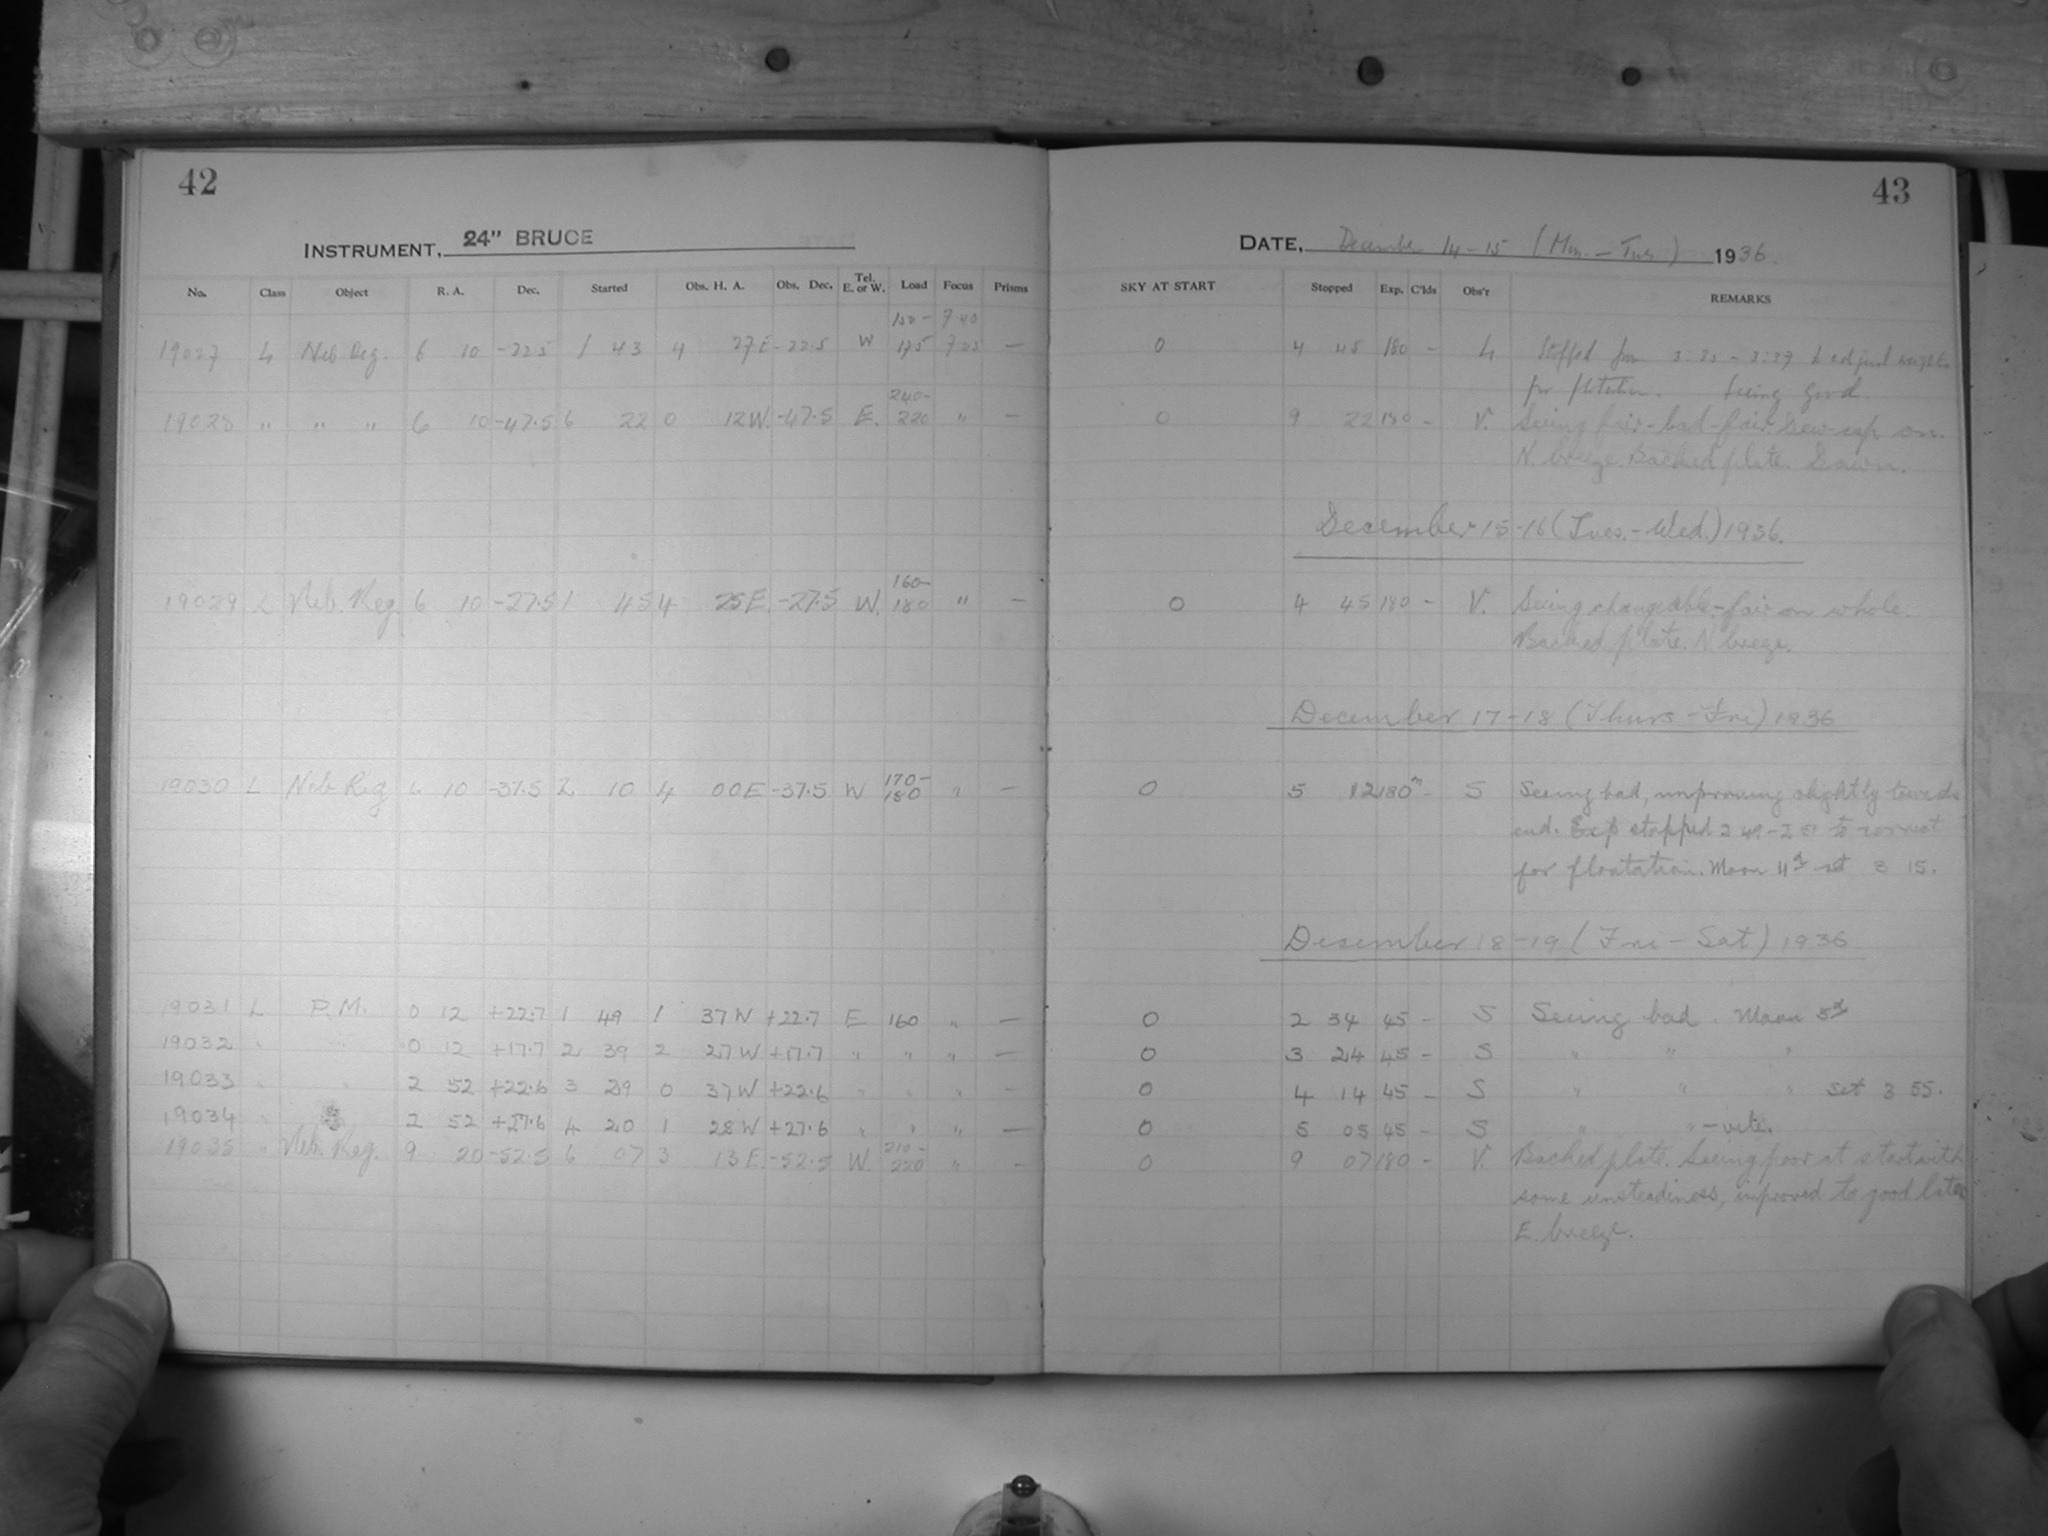 42
INSTRUMENT, 24" BRUCE
No. Class Object R. A. Dec. Started Obs. H. A. Obs. Dec. Tel. E. or W. Load Focus Prisms
150- 7.40
19027 L Neb. Reg. 6 10 -22.5 1 43 4 27 E -22.5 W 175 7.45 —
240-
19028 " " " 6 10 -47.5 6 22 0 12 W. -47.5 E. 220 " —
160-
19029 L Neb. Reg. 6 10 -27.5 1 45 4 25 E. -27.5 W. 180 " —
170-
19030 L Neb Reg 6 10 -37.5 2 10 4 00 E -37.5 W 180 " —
19031 L P.M. 0 12 +22.7 1 49 1 37 W +22.7 E 160 " —
19032 " " 0 12 +17.7 2 39 2 27 W +17.7 " " " —
19033 " " 2 52 +22.6 3 29 0 37 W +22.6 " " " —
19034 " 2 52 +27.6 4 20 1 28 W +27.6 " " " —
210-
19035 " Neb. Reg. 9 20 -52.5 6 07 3 13 E. -52.5 W. 220 " —
43
DATE, December 14-15 (Mon. - Tues.) 1936.
SKY AT START Stopped Exp. C'lds Obs'r REMARKS
0 4 45 180 - L Stopped from 3:35 - 3:37 to adjust weights
for flotation. Seeing good.
0 9 22 180 - V. Seeing fair-bad-fair. Dew-cap on.
N. breeze. Backed plate. Dawn.
December 15-16 (Tues. - Wed.) 1936.
0 4 45 180 - V. Seeing changeable-fair on whole.
Backed plate. N. breeze.
December 17-18 (Thurs - Fri) 1936
0 5 12 180m - S Seeing bad, improving slightly towards
end. Exp stopped 2 49-2 51 to correct
for floatation. Moon 4d set 3 15.
December 18-19 (Fri - Sat) 1936
0 2 34 45 - S Seeing bad. Moon 5d
0 3 24 45 - S " " "
0 4 14 45 - S " " " set 3 55.
0 5 05 45 - S " "
0 9 07 180 - V. Backed plate. Seeing poor at start with
some unsteadiness, improved to good later
E. breeze.